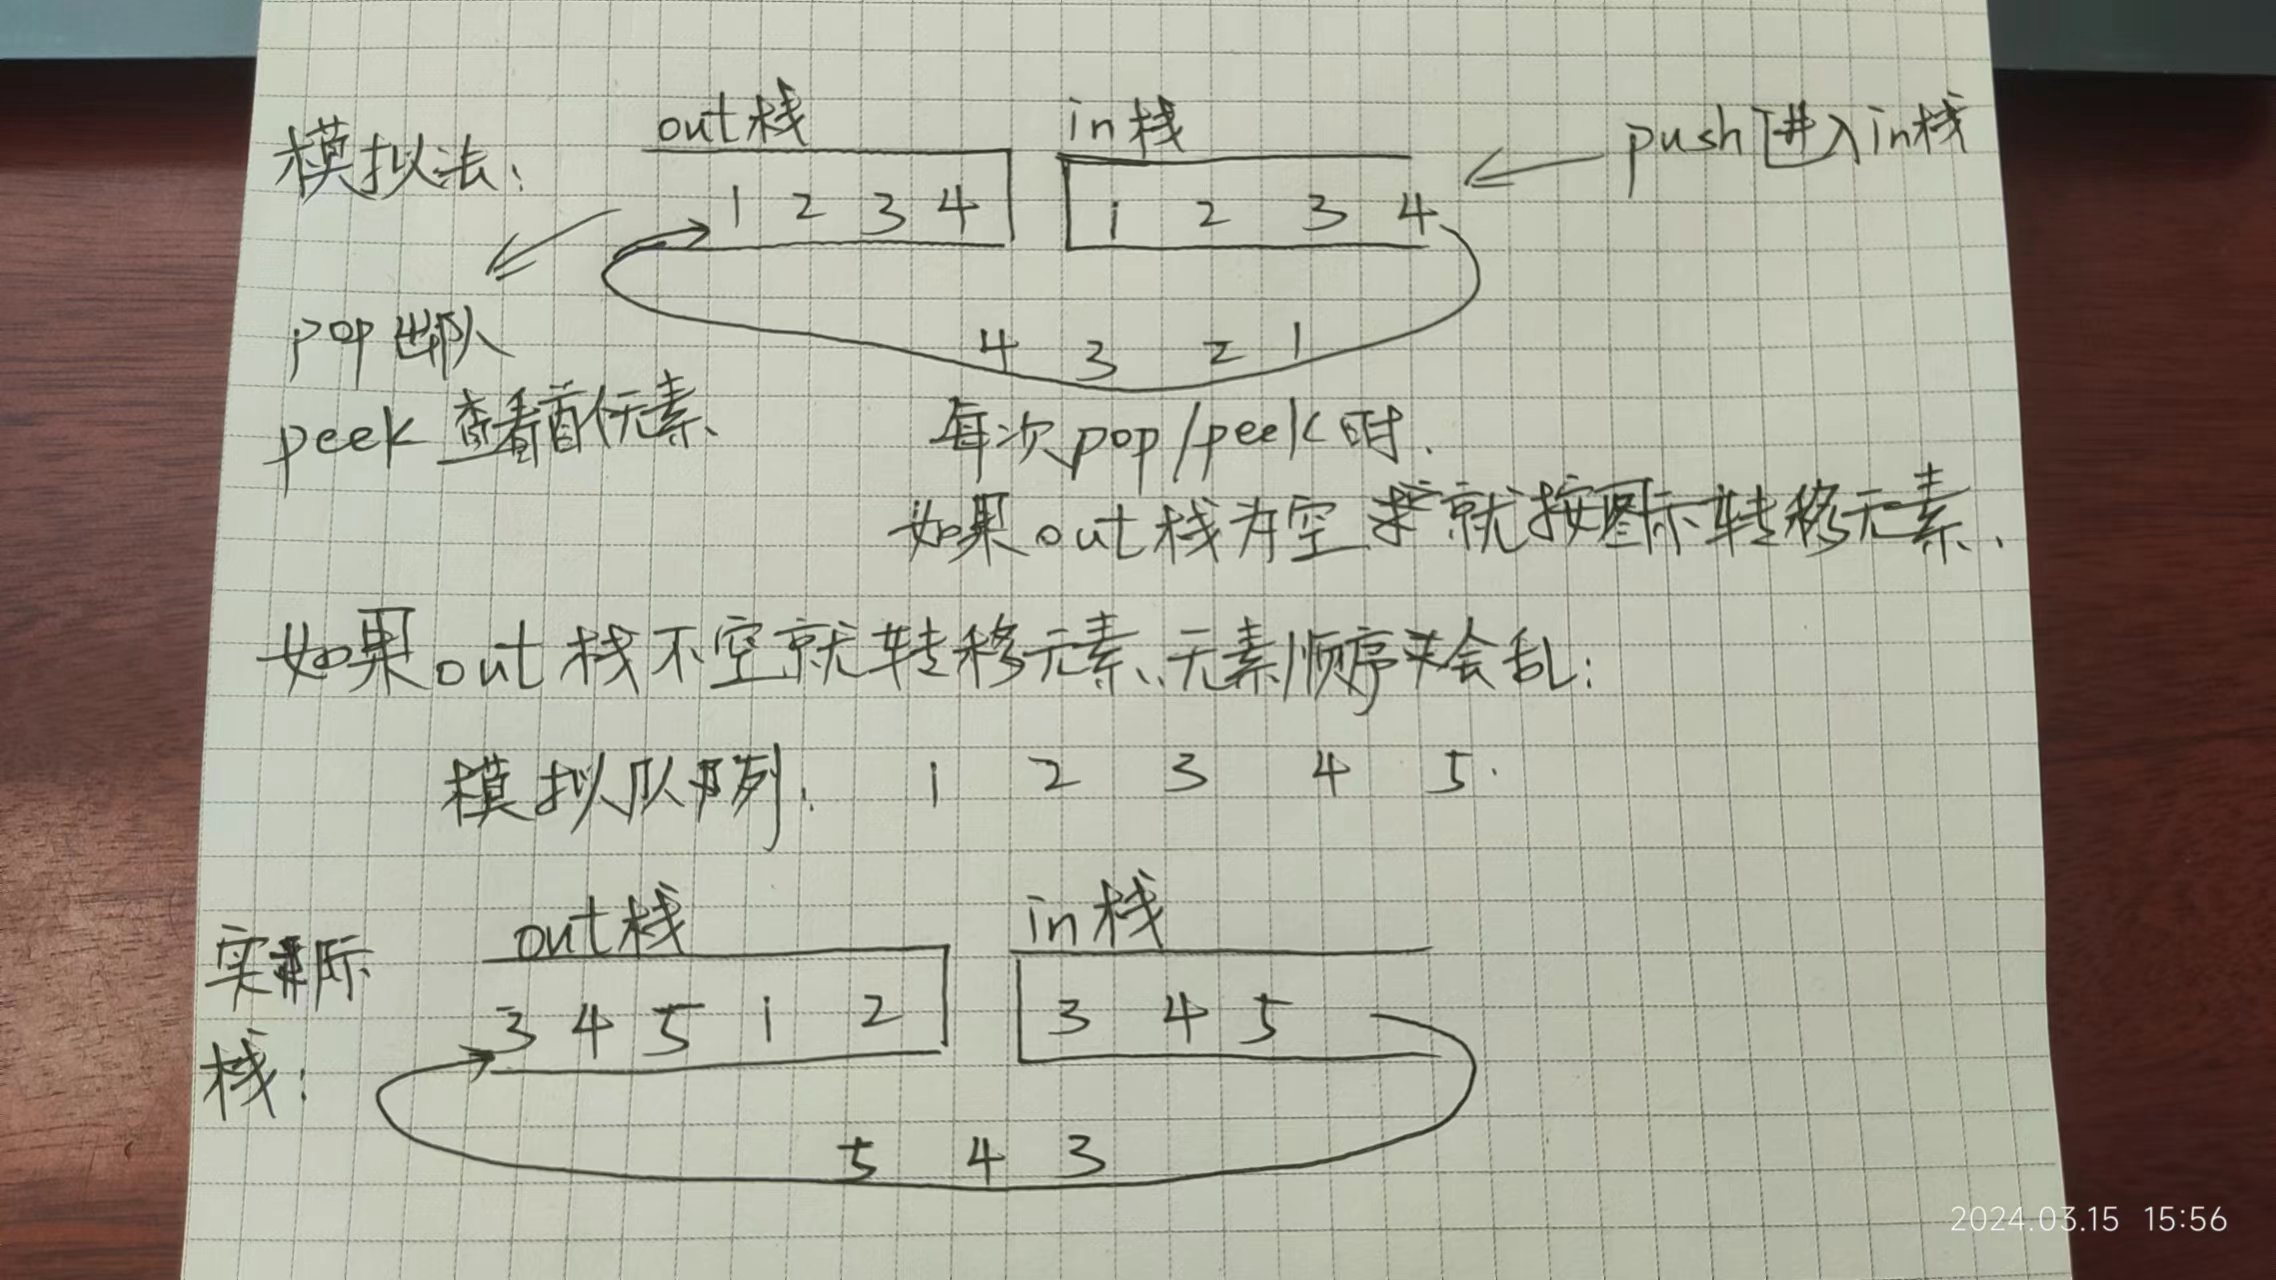 out栈 in栈
模拟法: push进入in栈
1 2 3 4 1 2 3 4
pop出队
4 3 2 1
peek 查看首位元素、
每次pop/peek时.
如果out栈为空 就按图示转移元素、
如果out栈不空就转移元素、元素顺序会乱:
模拟队列: 1 2 3 4 5
out栈 in栈
实际
3 4 5 1 2 3 4 5
栈:
5 4 3
2024.03.15 15:56